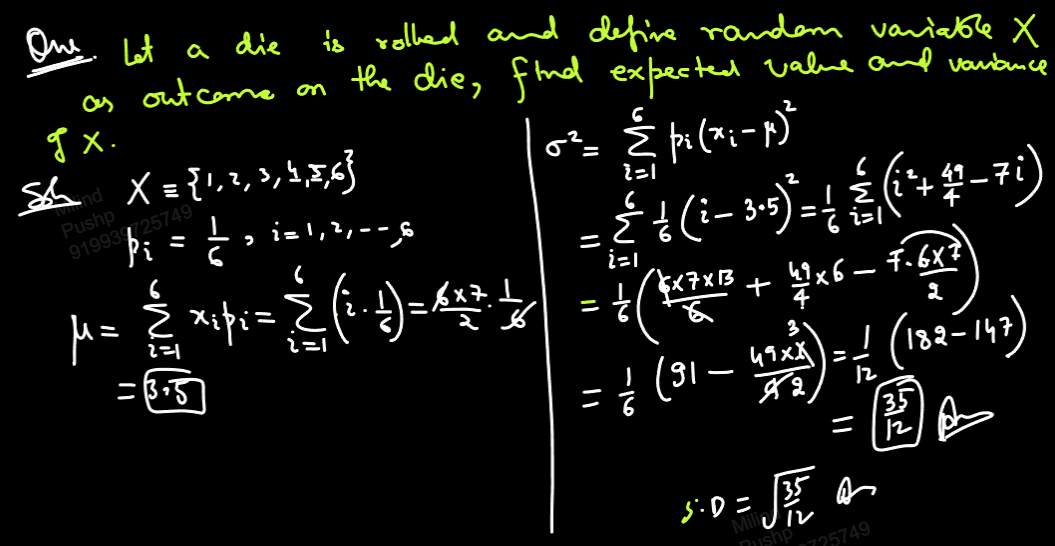 Que. Let a die is rolled and define random variable X
as outcome on the die, find expected value and variance
of X.
Soln X ≡ {1, 2, 3, 4, 5, 6}
pᵢ = 1/6, i = 1, 2, --, 6
μ = Σ_{i=1}^{6} xᵢpᵢ = Σ_{i=1}^{6} (i · 1/6) = 6×7/2 · 1/6
= 3.5
σ² = Σ_{i=1}^{6} pᵢ(xᵢ - μ)²
= Σ_{i=1}^{6} 1/6 (i - 3.5)² = 1/6 Σ_{i=1}^{6} (i² + 49/4 - 7i)
= 1/6 (6×7×13/6 + 49/4 × 6 - 7·6×7/2)
= 1/6 (91 - 49×3/2) = 1/12 (182 - 147)
= 35/12 Ans
S.D = √(35/12) Ans
Milind
Pushp
919939725749
Milind
Pushp